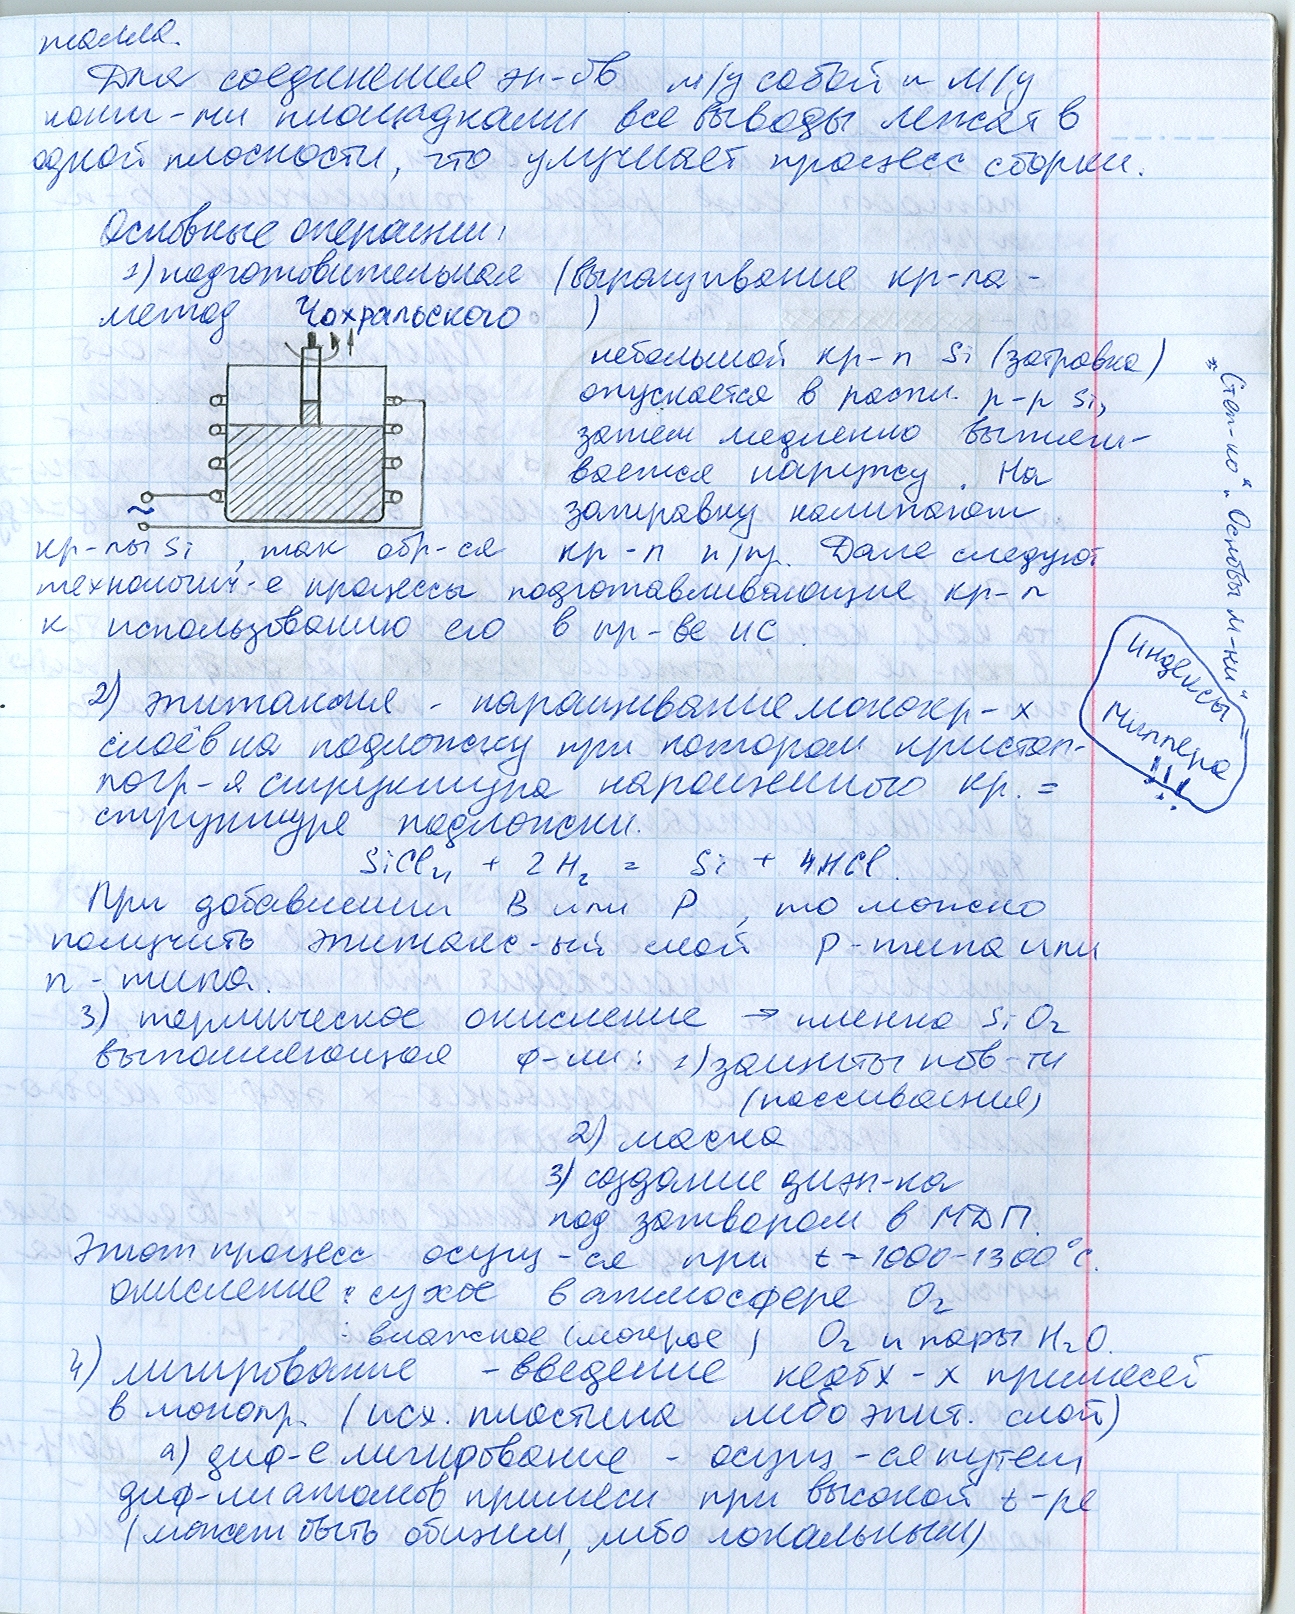 талла.
Для соединения эл-ов м/у собой и м/у
конт-ми площадками все выводы лежат в
одной плоскости, что улучшает процесс сборки.
Основные операции:
1) подготовительная (выращивание кр-ла -
метод Чохральского )
небольшой кр-л Si (затравка)
опускается в распл. р-р Si,
затем медленно вытяги-
вается наружу. На
затравку налипают
~
кр-лы Si, так обр-ся кр-л п/пр. Далее следуют
технологич-е процессы подготавливающие кр-л
к использованию его в пр-ве ИС
2) эпитаксия - наращивание монокр-х
слоёв на подложку при котором кристал-
логр-я структура наращенного кр. =
структуре подложки.
SiCl4 + 2H2 = Si + 4HCl.
При добавлении B или P, то можно
получить эпитакс-ый слой p-типа или
n-типа.
3) термическое окисление → пленка SiO2
выполняющая ф-ли: 1) защиты пов-ти
(пассивация)
2) маска
3) создание диэл-ка
под затвором в МДП
Этот процесс осущ-ся при t = 1000-1300°C.
окисление: сухое в атмосфере O2
: влажное (мокрое) O2 и пары H2O.
4) легирование - введение необх-х примесей
в монокр. (исх. пластина либо эпит. слой)
а) диф-е легирование - осущ-ся путем
диф-ии атомов примеси при высокой t-ре
(может быть общим, либо локальным)
* Степ-ко "Основы м-ки"
индексы
Миллера
!!!